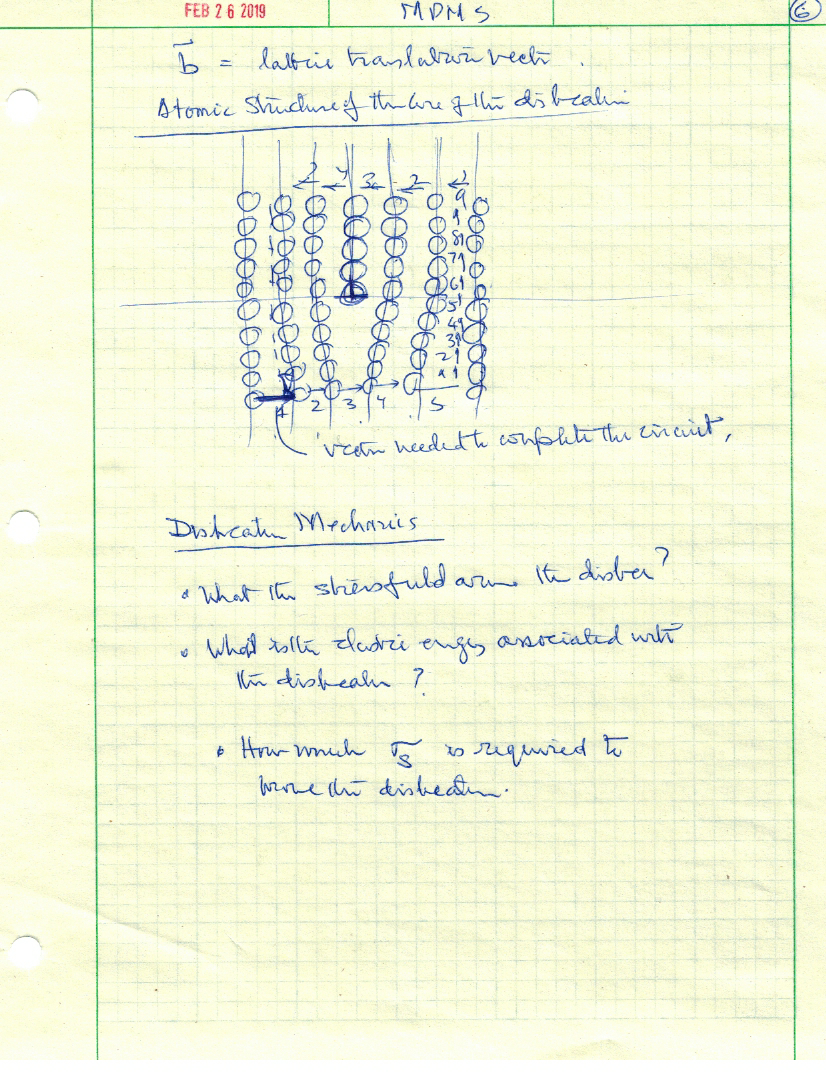 FEB 26 2019 MDMS 6
b = lattice translation vector.
Atomic Structure of the Core of the dislocation
3 2 1
9
8
7
6
5
4
3
2
1
1 2 3 4 5
vector needed to complete the circuit,
Dislocation Mechanics
• What the stress field aroun the disloc?
• What is the elastic energy associated with
the dislocation ?
• How much σs is required to
move the dislocation.